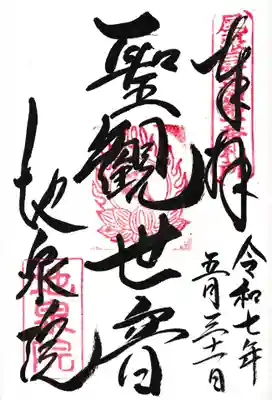 奉拝
令和七年
五月三十一日
聖観世音
地泉院
地泉院